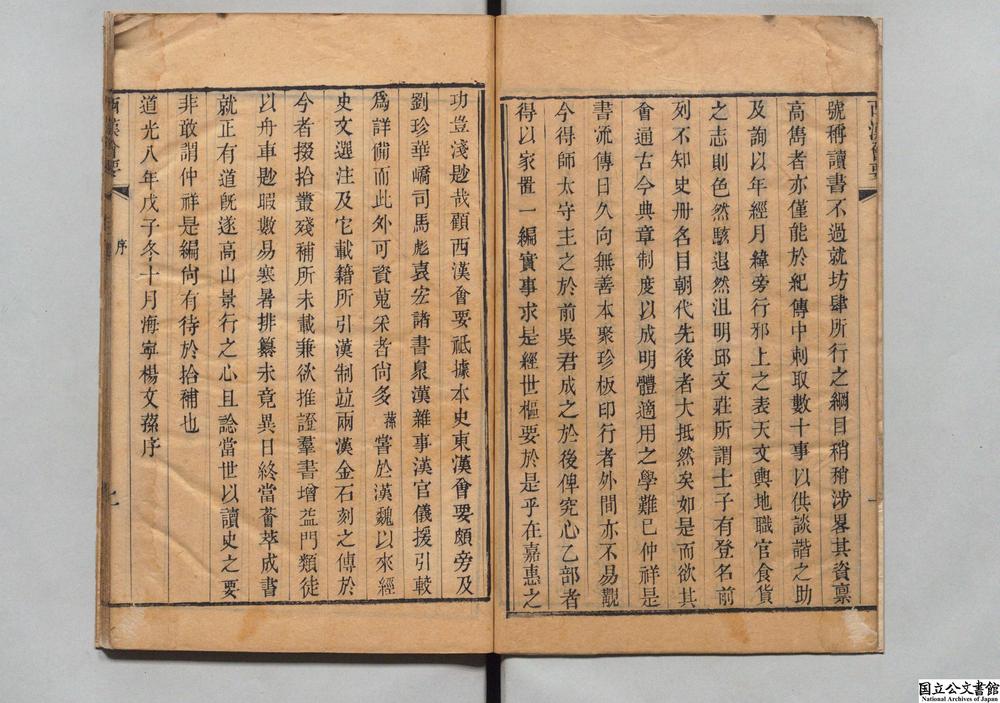 兩漢會要
號稱讀書不過就坊肆所行之綱目稍稍涉畧其資稟
高雋者亦僅能於紀傳中剌取數十事以供談諧之助
及詢以年經月緯旁行邪上之表天文輿地職官食貨
之志則色然駭退然沮明邱文莊所謂士子有登名前
列不知史册名目朝代先後者大抵然矣如是而欲其
會通古今典章制度以成明體適用之學難已仲祥是
書流傳日久向無善本聚珍板印行者外間亦不易覯
今得師太守主之於前吳君成之於後俾究心乙部者
得以家置一編實事求是經世樞要於是乎在嘉惠之
功豈淺尠哉顧西漢會要祗據本史東漢會要頗旁及
劉珍華嶠司馬彪袁宏諸書泉漢雜事漢官儀援引較
爲詳備而此外可資蒐采者尙多蓀嘗於漢魏以來經
史文選注及它載籍所引漢制竝兩漢金石刻之傳於
今者掇拾叢殘補所未載兼欲推證羣書增益門類徒
以舟車尠暇數易寒暑排纂未竟異日終當薈萃成書
就正有道旣遂高山景行之心且諗當世以讀史之要
非敢謂仲祥是編尙有待於拾補也
道光八年戊子冬十月海寧楊文蓀序
兩漢會要
序
国立公文書館
National Archives of Japan